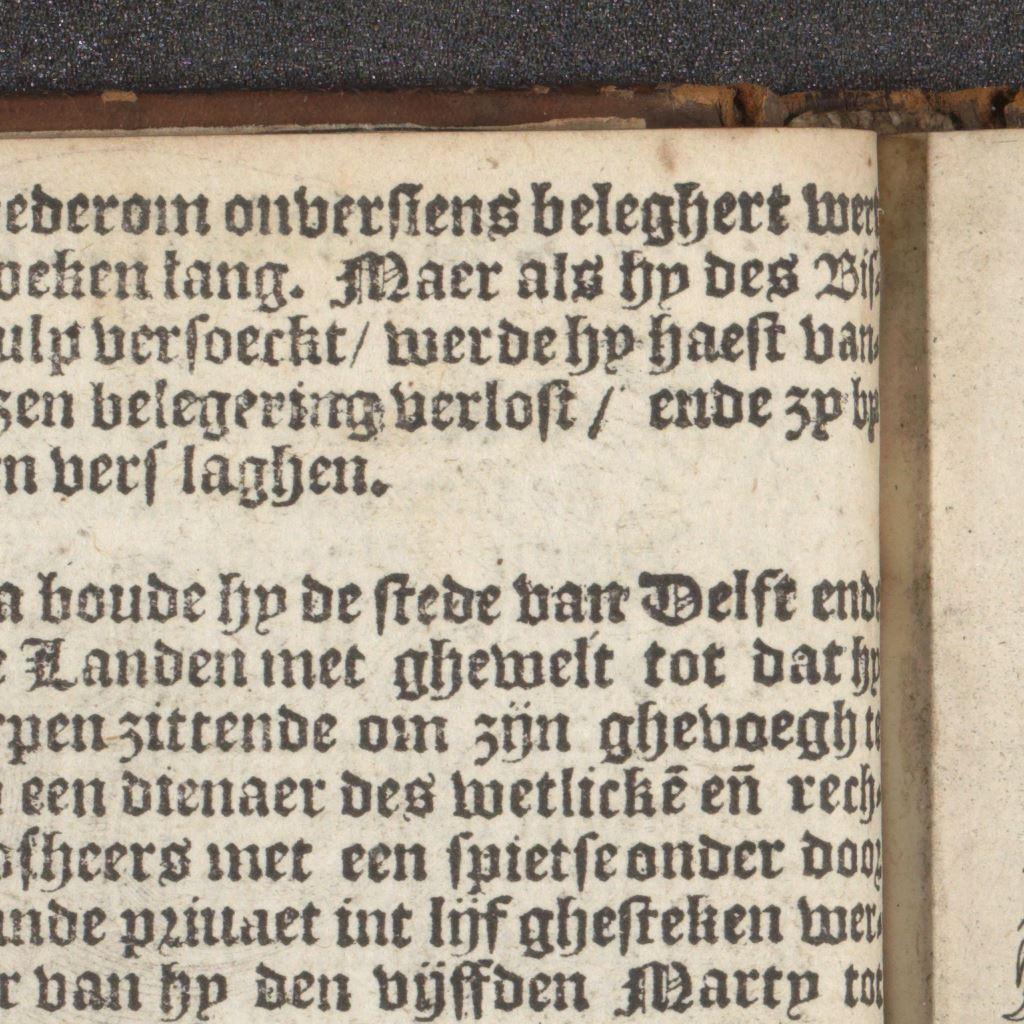 ederom onversiens beleghert wert
oeken lang. Maer als hy des Bis
ulp versoeckt/ werde hy haest van-
sen belegering verlost / ende zy by
n vers laghen.
a boude hy de stede van Delft ende
e Landen met ghewelt tot dat hy
rpen zittende om zijn ghevoegh te
een dienaer des wetlickē eñ rech-
ofheers met een spietse onder door
ande privaet int lijf ghesteken wer-
r van hy den vijffden Marty tot